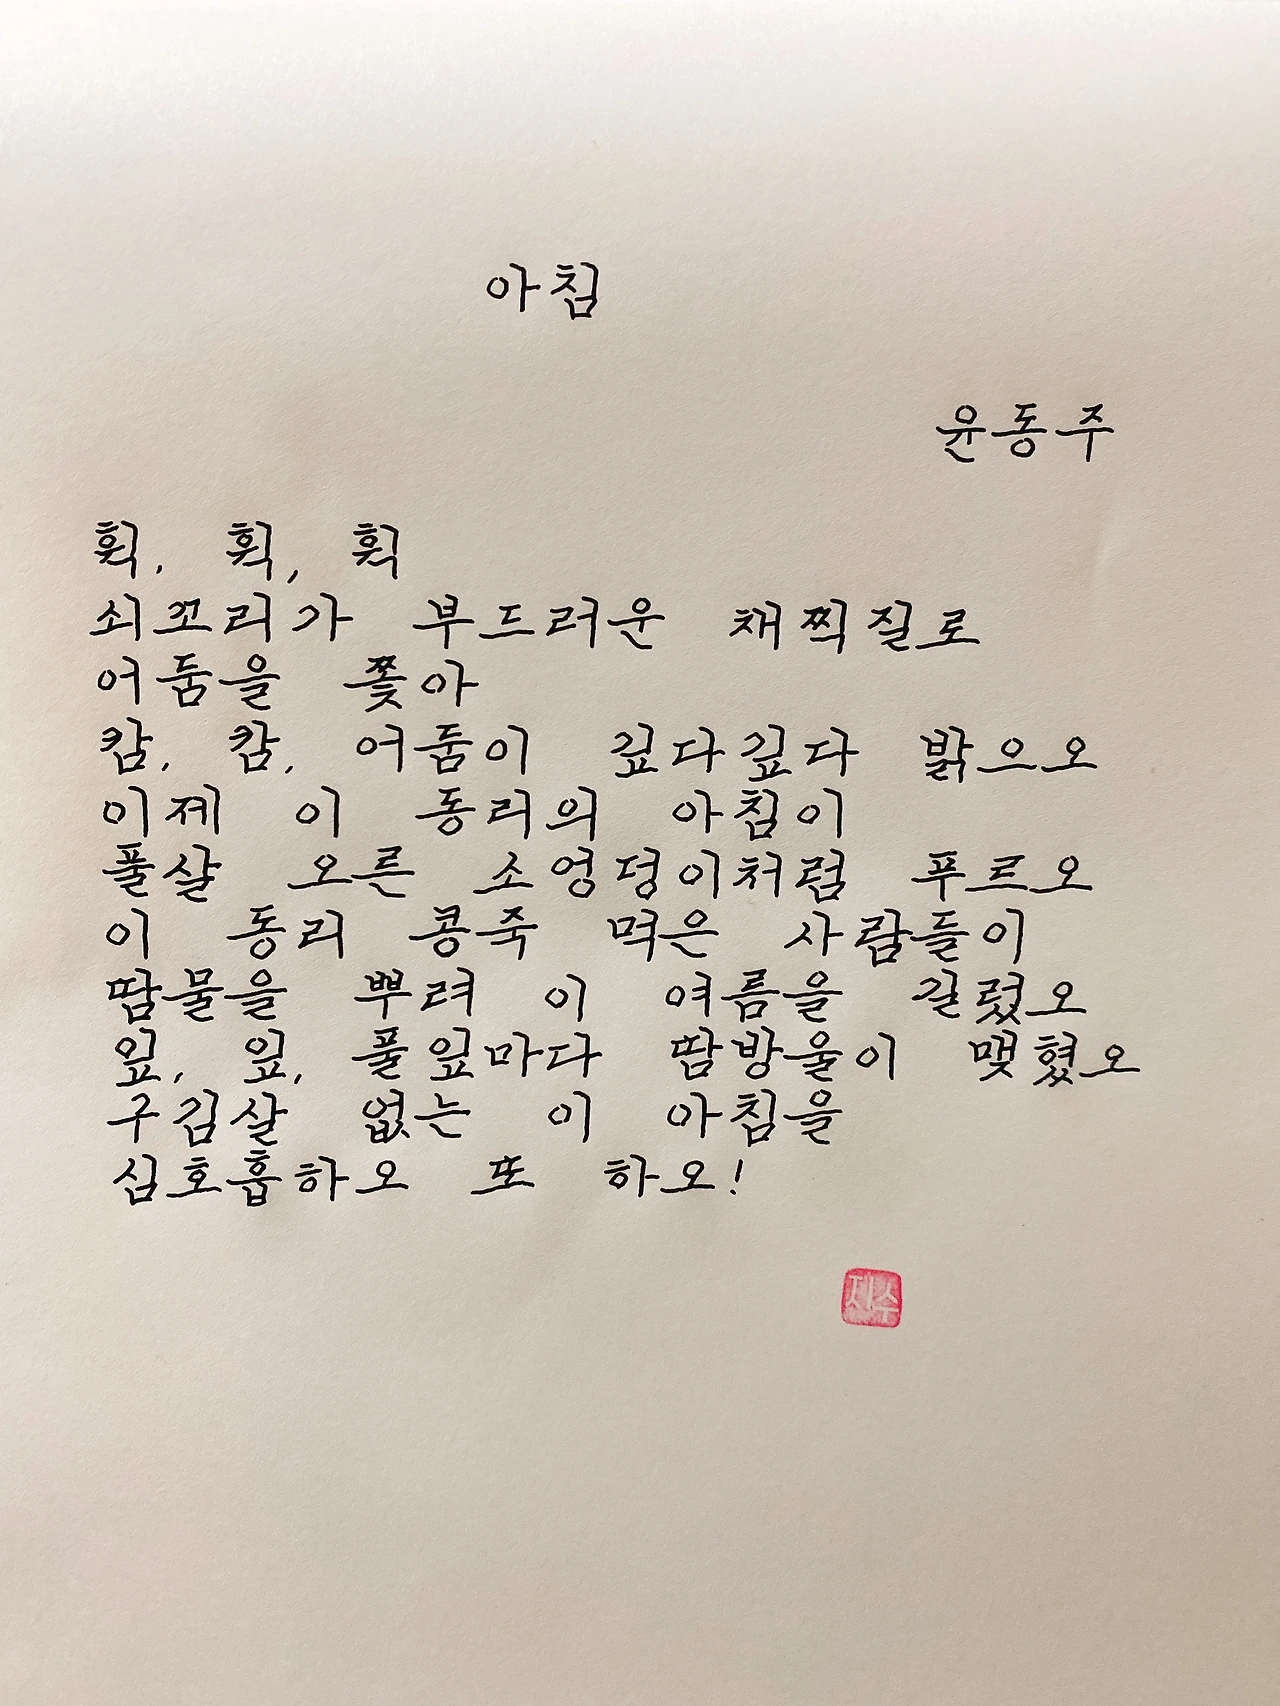 아침
윤동주
휙, 휙, 휙
쇠꼬리가 부드러운 채찍질로
어둠을 쫓아
캄, 캄, 어둠이 깊다깊다 밝으오
이제 이 동리의 아침이
풀살 오른 소엉덩이처럼 푸르오
이 동리 콩죽 먹은 사람들이
땀물을 뿌려 이 여름을 길렀오
잎, 잎, 풀잎마다 땀방울이 맺혔오
구김살 없는 이 아침을
심호흡하오 또 하오!